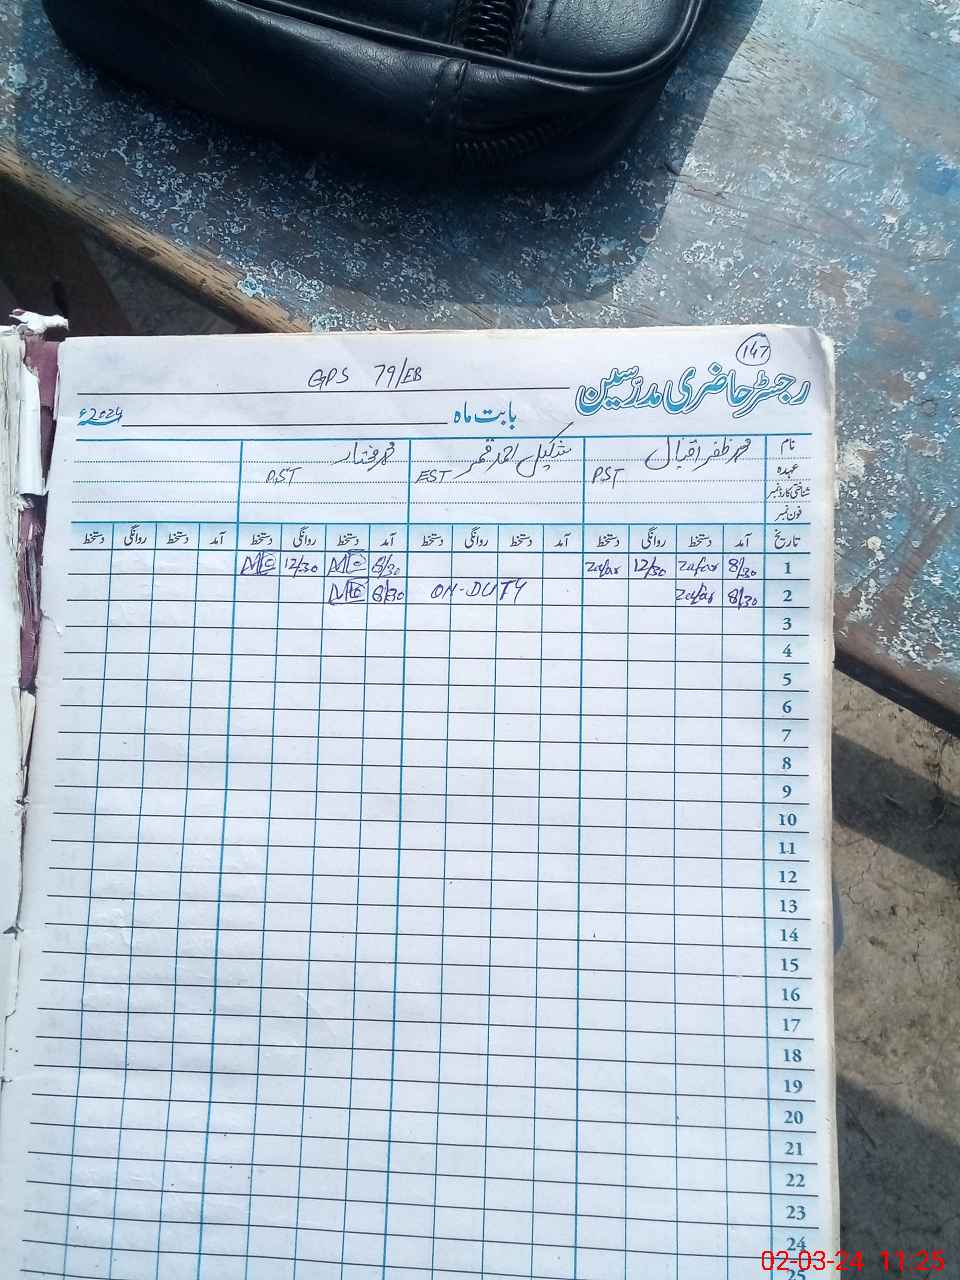 147
رجسٹر حاضری مدرّسین
GPS 79/EB
بابت ماہ 2024ء
نام محمد ظفر اقبال شکیل احمد قمر محمد مختار
عہدہ PST EST PST
شناختی کارڈ نمبر
فون نمبر
تاریخ آمد دستخط روانگی دستخط آمد دستخط روانگی دستخط آمد دستخط روانگی دستخط آمد دستخط روانگی دستخط
1 8/30 Zafar 12/30 Zafar 8/30 12/30
2 8/30 Zafar ON-DUTY 8/30
3
4
5
6
7
8
9
10
11
12
13
14
15
16
17
18
19
20
21
22
23
24
25
02-03-24 11:25